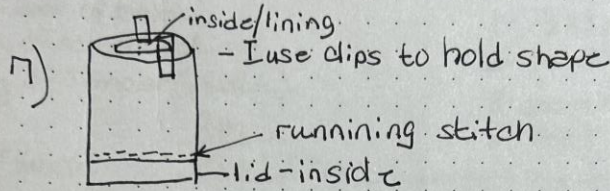 inside/lining
- I use clips to hold shape
7)
runnining stitch
lid-inside